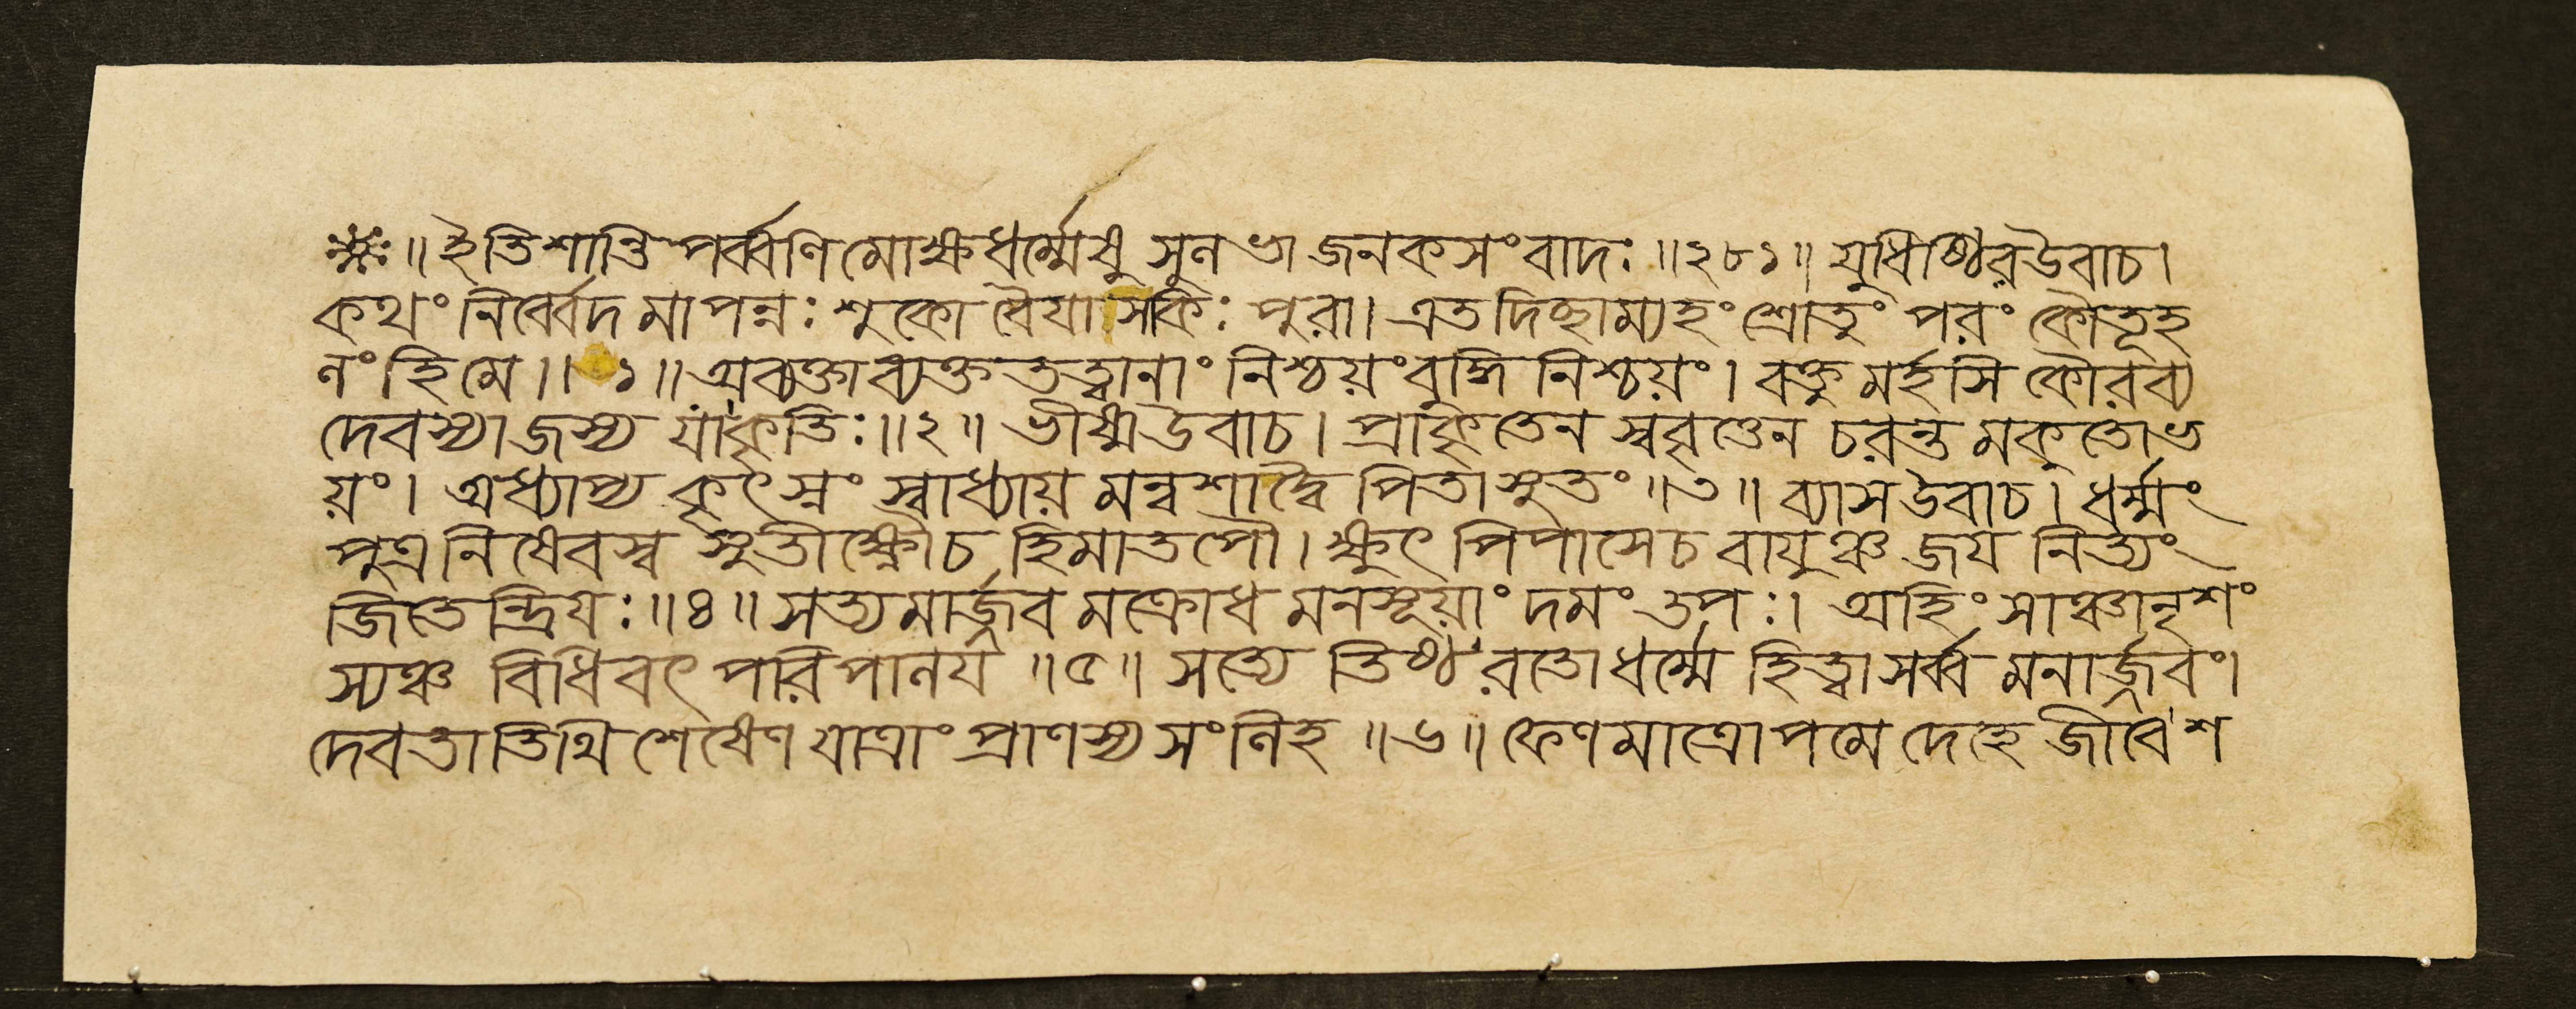 ॥ ইতিশান্তিপর্ব্বণিমোক্ষধর্ম্মেষু সুনভাজনকসংবাদঃ ॥২৮১॥ যুধিষ্ঠিরউবাচ।
কথং নির্ব্বেদমাপন্নঃ শুকোবৈয়াসকিঃ পুরা। এতদিচ্ছাম্যহং শ্রোতুং পরং কৌতূহ
লং হি মে॥ ১॥ অব্যক্তাব্যক্ততত্ত্বানাং নিশ্চয়ংবুদ্ধিনিশ্চয়ং। বক্তুমর্হসি কৌরব্য
দেবস্যাজস্য যাকৃতিঃ॥২॥ ভীষ্মউবাচ। প্রাকৃতেন সুবৃত্তেন চরন্তমকুতোভ
য়ং। অধ্যাপ্য কৃৎস্নং স্বাধ্যায়মন্বশাদ্বৈ পিতাসুতং॥৩॥ ব্যাসউবাচ। ধর্ম্মং
পুত্রনিষেবস্ব সুতীক্ষ্ণৌচ হিমাতপৌ। ক্ষুৎপিপাসেচ বায়ুঞ্চ জয নিত্যং
জিতেন্দ্রিযঃ॥৪॥ সত্যমার্জ্জবমক্রোধমনসূয়াং দমং তপঃ। অহিংসাঞ্চানৃশং
স্যঞ্চ বিধিবৎ পরিপালয ॥৫॥ সত্যে তিষ্ঠ রতোধর্ম্মে হিত্বাসর্ব্বমনার্জ্জবং।
দেবতাতিথিশেষেণ যাত্রাং প্রাণস্য সংলিহ ॥৬॥ ফেণমাত্রোপমে দেহে জীবে শ